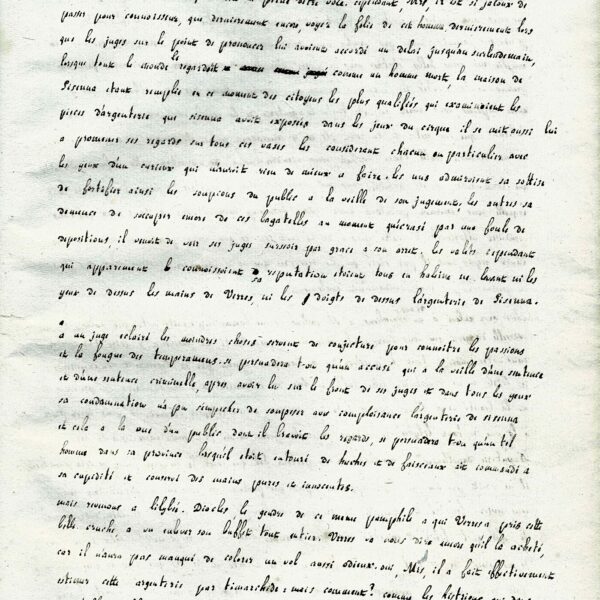 a peine d'être volé. cependant, Mrs, il est si jaloux de
passer pour connoisseur, que dernierement encor, voyez la folie de cet homme, dernierement lors
que les juges sur le point de prononcer lui avoient accordé un delai jusqu'au surlendemain,
lorsque tout le monde le regardoit comme un homme mort, la maison de
Sisenna etant remplie en ce moment des citoyens les plus qualifiés qui examinoient les
pieces d'argenterie que sisenna avoit exposées dans les jeux du cirque il se mit aussi lui
a promener ses regards sur tous ces vases les considerant chacun en particulier avec
les yeux d'un curieux qui n'auroit rien de mieux a faire. les uns admiroient sa sottise
de fortifier ainsi les soupçons du public a la veille de son jugement, les autres sa
demence de s'occuper encore de ces bagatelles au moment qu'ecrasé par une foule de
depositions, il venoit de voir ses juges surseoir par grace a son arret. les valets cependant
qui apparemment connoissoient sa reputation etoient tous en haleine ne levant ni les
yeux de dessus les mains de Verres, ni les doigts de dessus l'argenterie de Sisenna.
a un juge eclairé les moindres choses servent de conjecture pour connoitre les passions
et la fougue des temperamens. se persuadera t-on qu'un accusé qui a la veille d'une sentence
et d'une sentence criminelle, apres avoir lu sur le front de ses juges et dans tous les yeux
sa condamnation n'a pu s'empecher de soupeser avec complaisance l'argenterie de sisenna
et cela a la vue d'un public dont il bravoit les regards, se persuadera t-on qu'un tel
homme dans sa province lorsqu'il etoit entouré de haches et de faisceaux ait commandé a
sa cupidité et conservé des mains pures et innocentes.
mais revenons a lilybée. Diocles le gendre de ce meme pamphile a qui Verres a pris cette
belle cruche, a vu enlever son buffet tout entier. Verres va vous dire encore qu'il l'a acheté,
car il n'aura pas manqué de colorer un vol aussi odieux. oui, Mrs, il a fait effectivement
estimer cette argenterie par timarchide: mais comment? comme les histrions